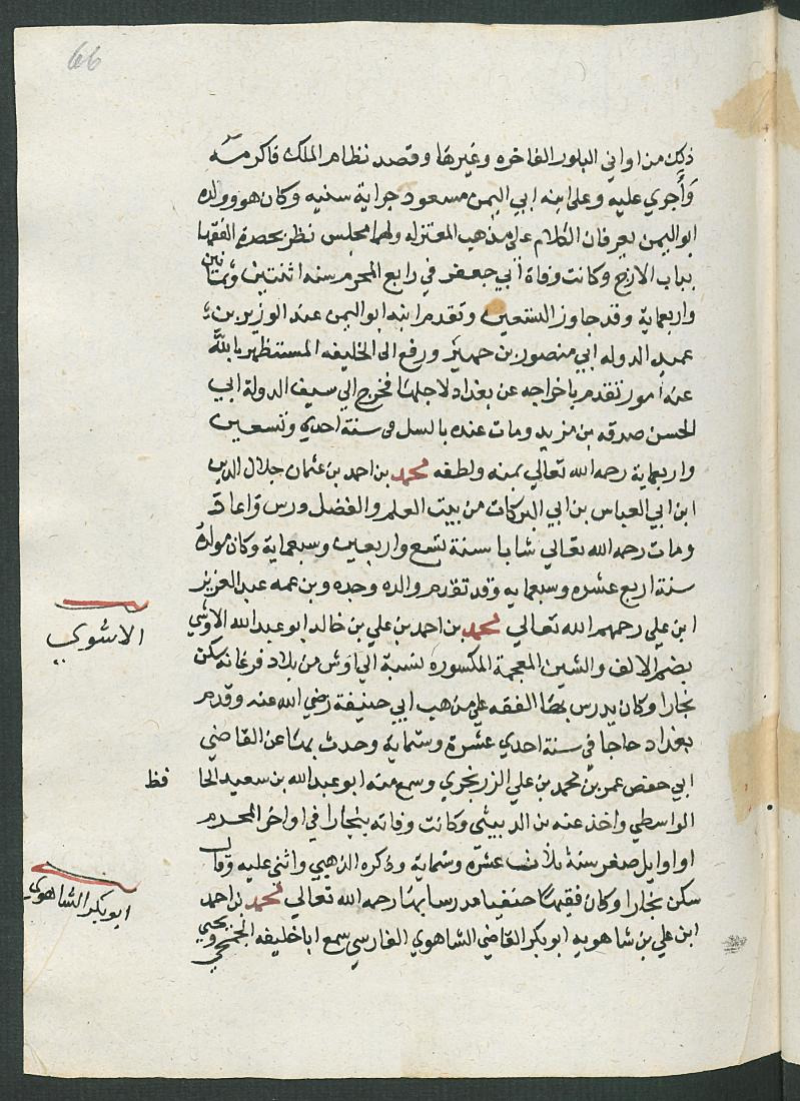 66
ذلك من اواني البلور الفاخره وغيرها وقصد نظام الملك فاكرمه
وأجري عليه وعلى ابنه ابي اليمن مسعود جراية سنيه وكان هو وولده
ابو اليمن يعرفان الكلام على مذهب المعتزله ولهما مجلس نظر بحضرة الفقها
بباب الازج وكانت وفاة أبي جعفر في رابع المحرم سنه اثنتين وثمانين
واربعماية وقد جاوز التسعين وتقدم ابنه ابو اليمن عند الوزير بن
عميد الدوله ابي منصور بن جهير ورفع الى الخليفه المستظهر بالله
عنه أمور تقدم باخراجه عن بغداد لاجلها فخرج الي سيف الدولة ابي
الحسن صدقه بن مزيد ومات عنده بالسل في سنة احدي وتسعين
واربعماية رحمه الله تعالي بمنه ولطفه محمد بن احمد بن عثمان جلال الدين
ابن ابي العباس بن ابي البركات من بيت العلم والفضل ودرس واعاد
ومات رحمه الله تعالي شابا سنة تسع واربعين وسبعماية وكان مولده
سنة اربع عشره وسبعمايه وقد تقدم والده وجده وبن عمه عبد العزيز
ابن علي رحمهم الله تعالي محمد بن احمد بن علي بن خالد ابو عبد الله الاوشي
الاشوي
بضم الالف والشين المعجمة المكسوره نسبة الي اوش من بلاد فرغانه سكن
بخارا وكان يدرس بها الفقه علي مذهب ابي حنيفة رضي الله عنه وقدم
بغداد حاجا في سنة احدي عشرة وستماية وحدث بها عن القاضي
ابي حفص عمر بن محمد بن علي الزرنجري وسمع منه ابو عبد الله بن سعيد الحا
فظ
الواسطي واخذ عنه بن الدبيثي وكانت وفاته ببخارا في اواخر المحرم
او اوايل صفر سنة ثلاث عشرة وستماية وذكره الذهبي واثني عليه وقال
سكن بخارا وكان فقيها حنفيا مدرسا بها رحمه الله تعالي محمد بن احمد
ابو بكر الشاهوي
ابن علي بن شاهويه ابو بكر القاضي الشاهوي الفارسي سمع ابا خليفه الجمحي ويحيي